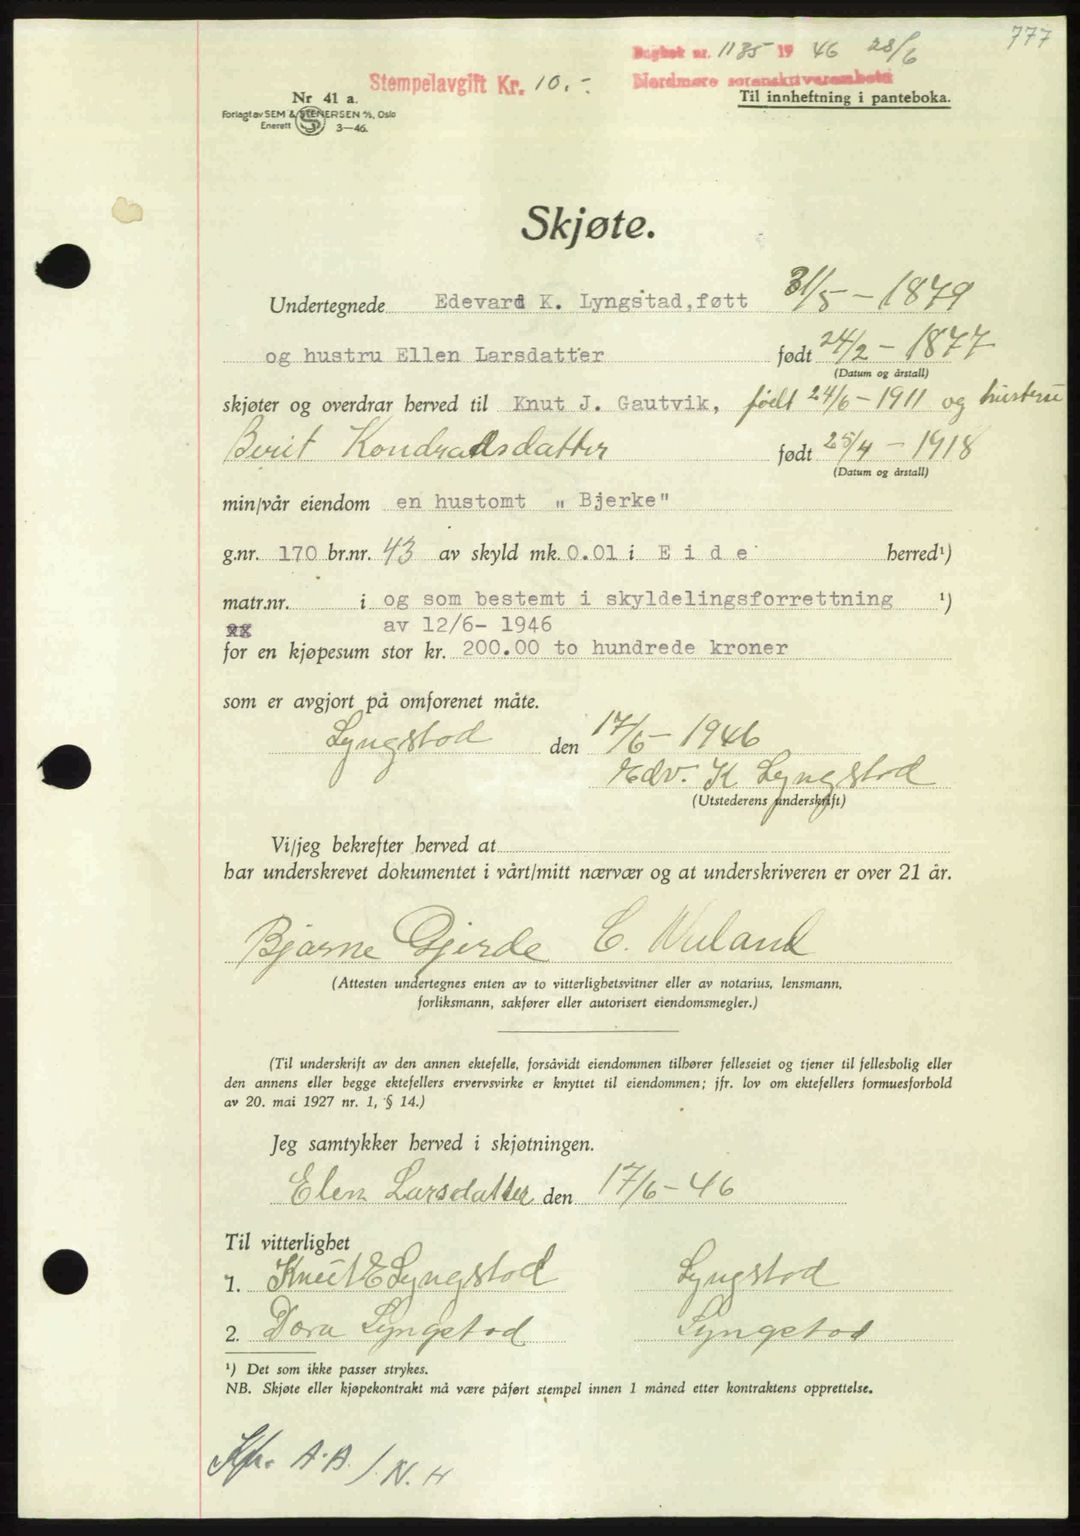 777
Dagbok nr. 1185 19 46 28/6
Nordmøre sorenskriverembete
Stempelavgift Kr. 10.-
Til innheftning i panteboka.
Nr 41 a.
Forlagt av SEM & STENERSEN A/S, Oslo
Enerett S 3-46.
Skjøte.
Undertegnede Edevard K. Lyngstad, føtt 31/5 - 1879
og hustru Ellen Larsdatter født 24/2 - 1877
(Datum og årstall)
skjøter og overdrar herved til Knut J. Gautvik, født 24/6 - 1911 og hustru
Berit Kondradsdatter født 25/4 - 1918
(Datum og årstall)
min/vår eiendom en hustomt „ Bjerke"
g.nr. 170 br.nr. 43 av skyld mk. 0.01 i E i d e herred¹)
matr.nr. i og som bestemt i skyldelingsforrettning ¹)
av 12/6- 1946
for en kjøpesum stor kr. 200.00 to hundrede kroner
som er avgjort på omforenet måte.
Lyngstad den 17/6 - 1946
Edv. K Lyngstad
(Utstederens underskrift)
Vi/jeg bekrefter herved at
har underskrevet dokumentet i vårt/mitt nærvær og at underskriveren er over 21 år.
Bjarne Gjerde C.
(Attesten undertegnes enten av to vitterlighetsvitner eller av notarius, lensmann,
forliksmann, sakfører eller autorisert eiendomsmegler.)
(Til underskrift av den annen ektefelle, forsåvidt eiendommen tilhører felleseiet og tjener til fellesbolig eller
den annens eller begge ektefellers ervervsvirke er knyttet til eiendommen; jfr. lov om ektefellers formuesforhold
av 20. mai 1927 nr. 1, § 14.)
Jeg samtykker herved i skjøtningen.
Elen Larsdatter den 17/6 - 46
Til vitterlighet
1. Knut E Lyngstad Lyngstad
2. Dora Lyngstad Lyngstad
¹) Det som ikke passer strykes.
NB. Skjøte eller kjøpekontrakt må være påført stempel innen 1 måned etter kontraktens opprettelse.
A.A / N. H